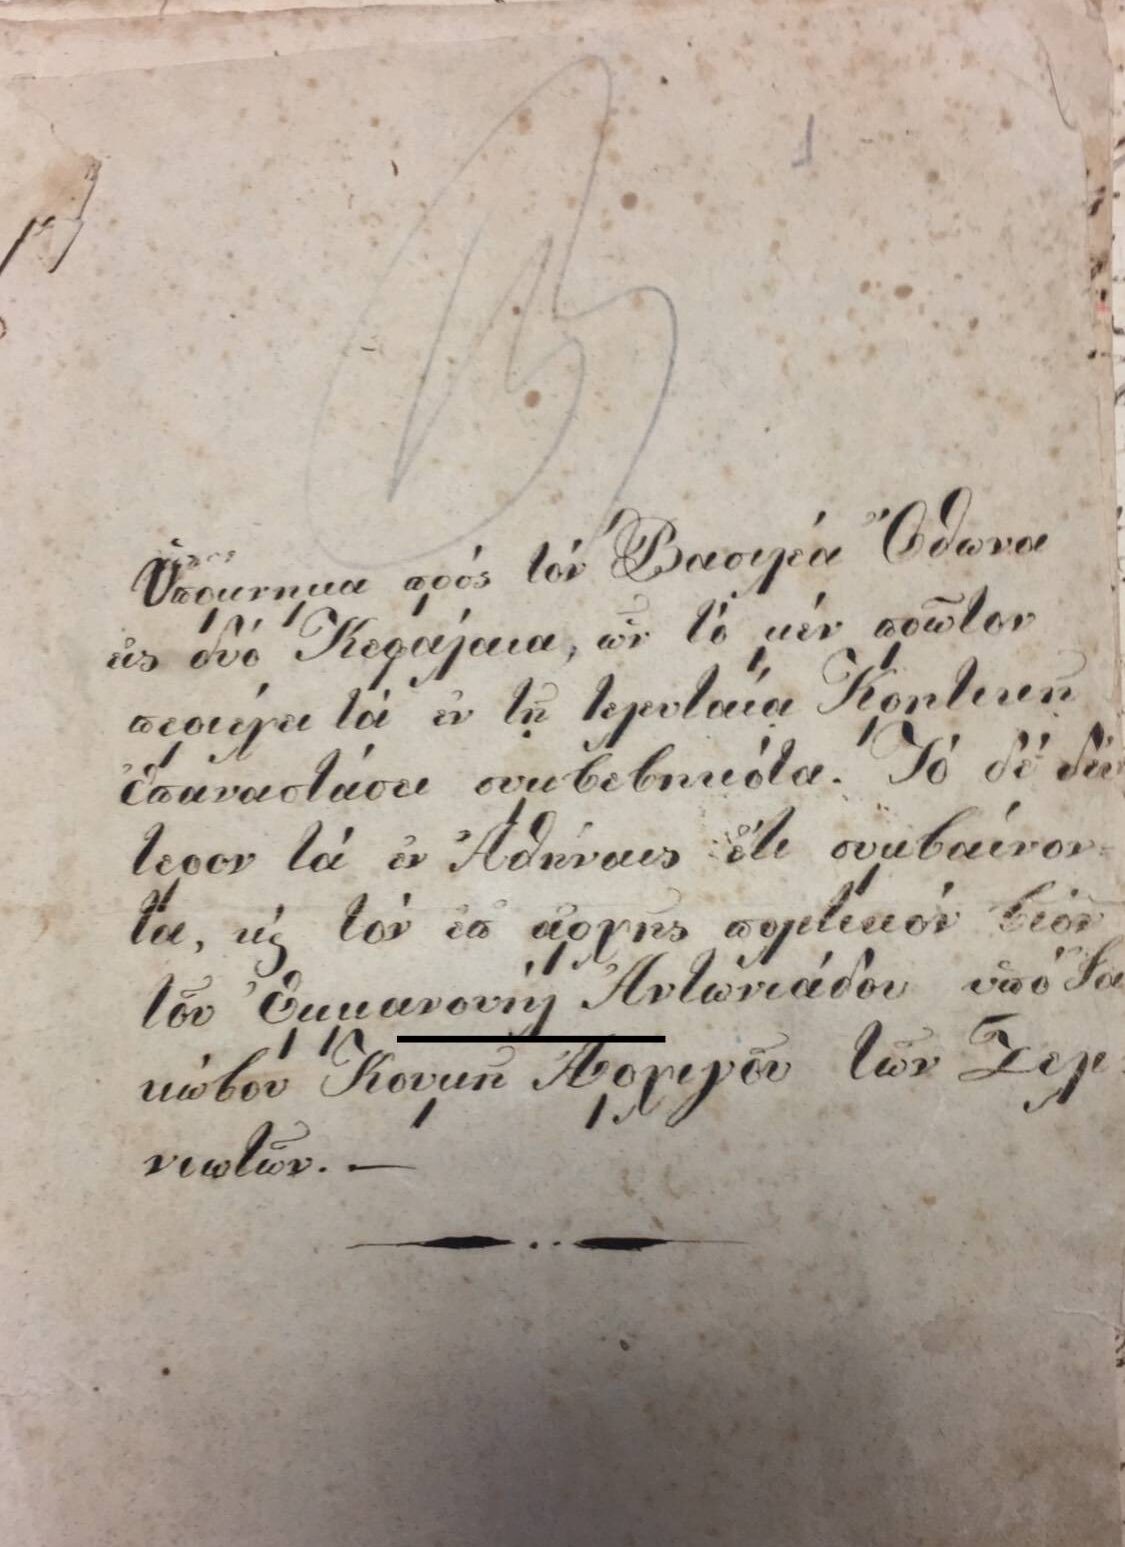 1
Ὑπόμνημα πρός τόν Βασιλέα Ὄθωνα
εἰς δύο Κεφάλαια, ὧν τό μέν πρῶτον
περιέχει τά ἐν τῇ τελευταία Κρητικῇ
Ἐπαναστάσει συμβεβηκότα. Τό δέ δεύ
τερον τά ἐν Ἀθήναις ἔτι συμβαίνον=
τα, κ̀ τόν ἐπ' ἀρχῆς πολιτικόν βίον
τοῦ Ἐμμανουήλ Ἀντωνιάδου ὑπό Ἰα
κώβου Κουμῆ Ἀρχηγοῦ τῶν Σελι
νιωτῶν. —